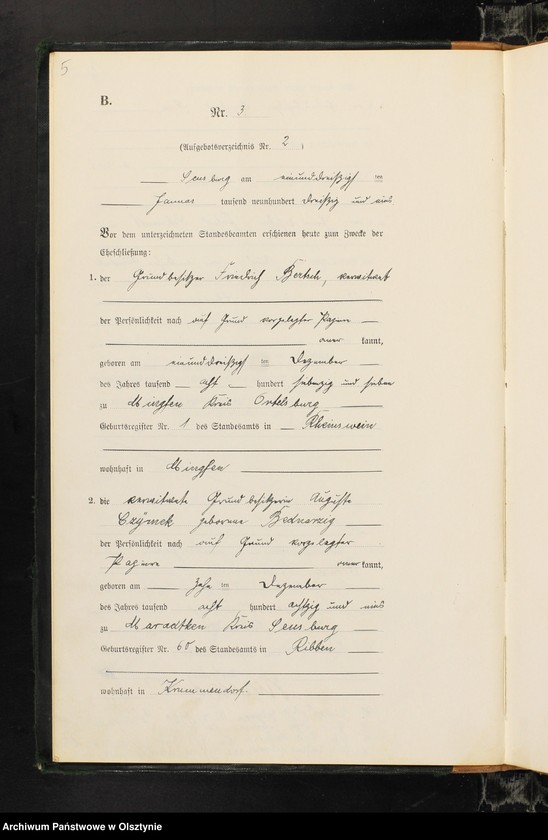 5
B.
Nr. 3
(Aufgebotsverzeichnis Nr. 2)
Sensburg am einunddreißigsten
Januar tausend neunhundert dreißig und eins
Vor dem unterzeichneten Standesbeamten erschienen heute zum Zwecke der
Eheschließung:
1. der Grundbesitzer Friedrich Bertuch, verwitwet
der Persönlichkeit nach auf Grund vorgelegter Papiere
kannt,
geboren am einunddreißigsten Dezember
des Jahres tausend acht hundert siebenzig und sieben
zu Mingfen Kreis Ortelsburg
Geburtsregister Nr. 1 des Standesamts in Rheinswein
wohnhaft in Mingfen
2. die verwitwete Grundbesitzerin Auguste
Czymek geborene Bednarzig
der Persönlichkeit nach auf Grund vorgelegter
Papiere kannt,
geboren am Dezember
des Jahres tausend acht hundert achtzig und eins
zu Maradtken Kreis Sensburg
Geburtsregister Nr. 60 des Standesamts in Ribben
wohnhaft in Krummendorf.
Archiwum Państwowe w Olsztynie